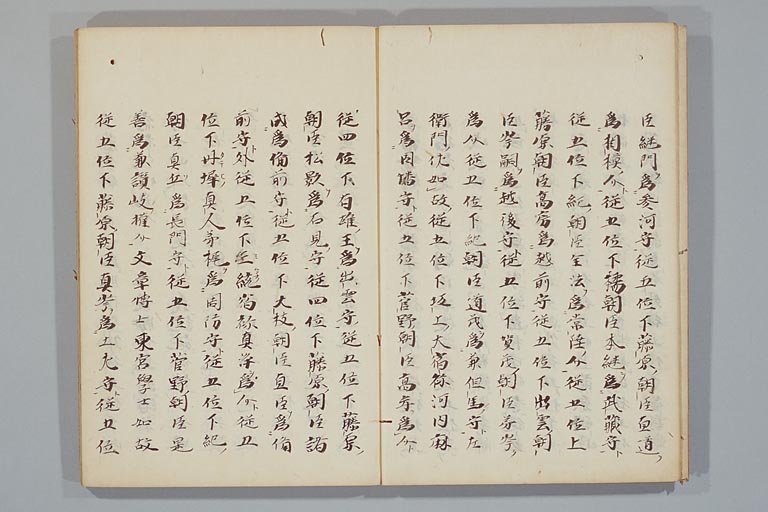 臣継門為参河守従五位下藤原朝臣直道
為相模介従五位下橘朝臣本継為武蔵守
従五位下紀朝臣全法為常陸介従五位上
藤原朝臣高房為越前守従五位下出雲朝
臣岑嗣為越後守従五位下賀茂朝臣
為介従五位下紀朝臣道茂為兼但馬守左
衛門佐如故従五位下坂上大宿祢河内麻
呂為因幡守従五位下菅野朝臣高年為介
従四位下百雄王為出雲守従五位下藤原
朝臣松影為石見守従四位下藤原朝臣諸
成為備前守従五位下大枝朝臣直臣為備
前守外従五位下壬統宿祢真浄為介従五
位下丹墀真人弟梶為周防守従五位下紀
朝臣真丘為長門守従五位下菅野朝臣是
善為兼讃岐権介文章博士東宮学士如故
従五位下藤原朝臣真岑為土左守従五位